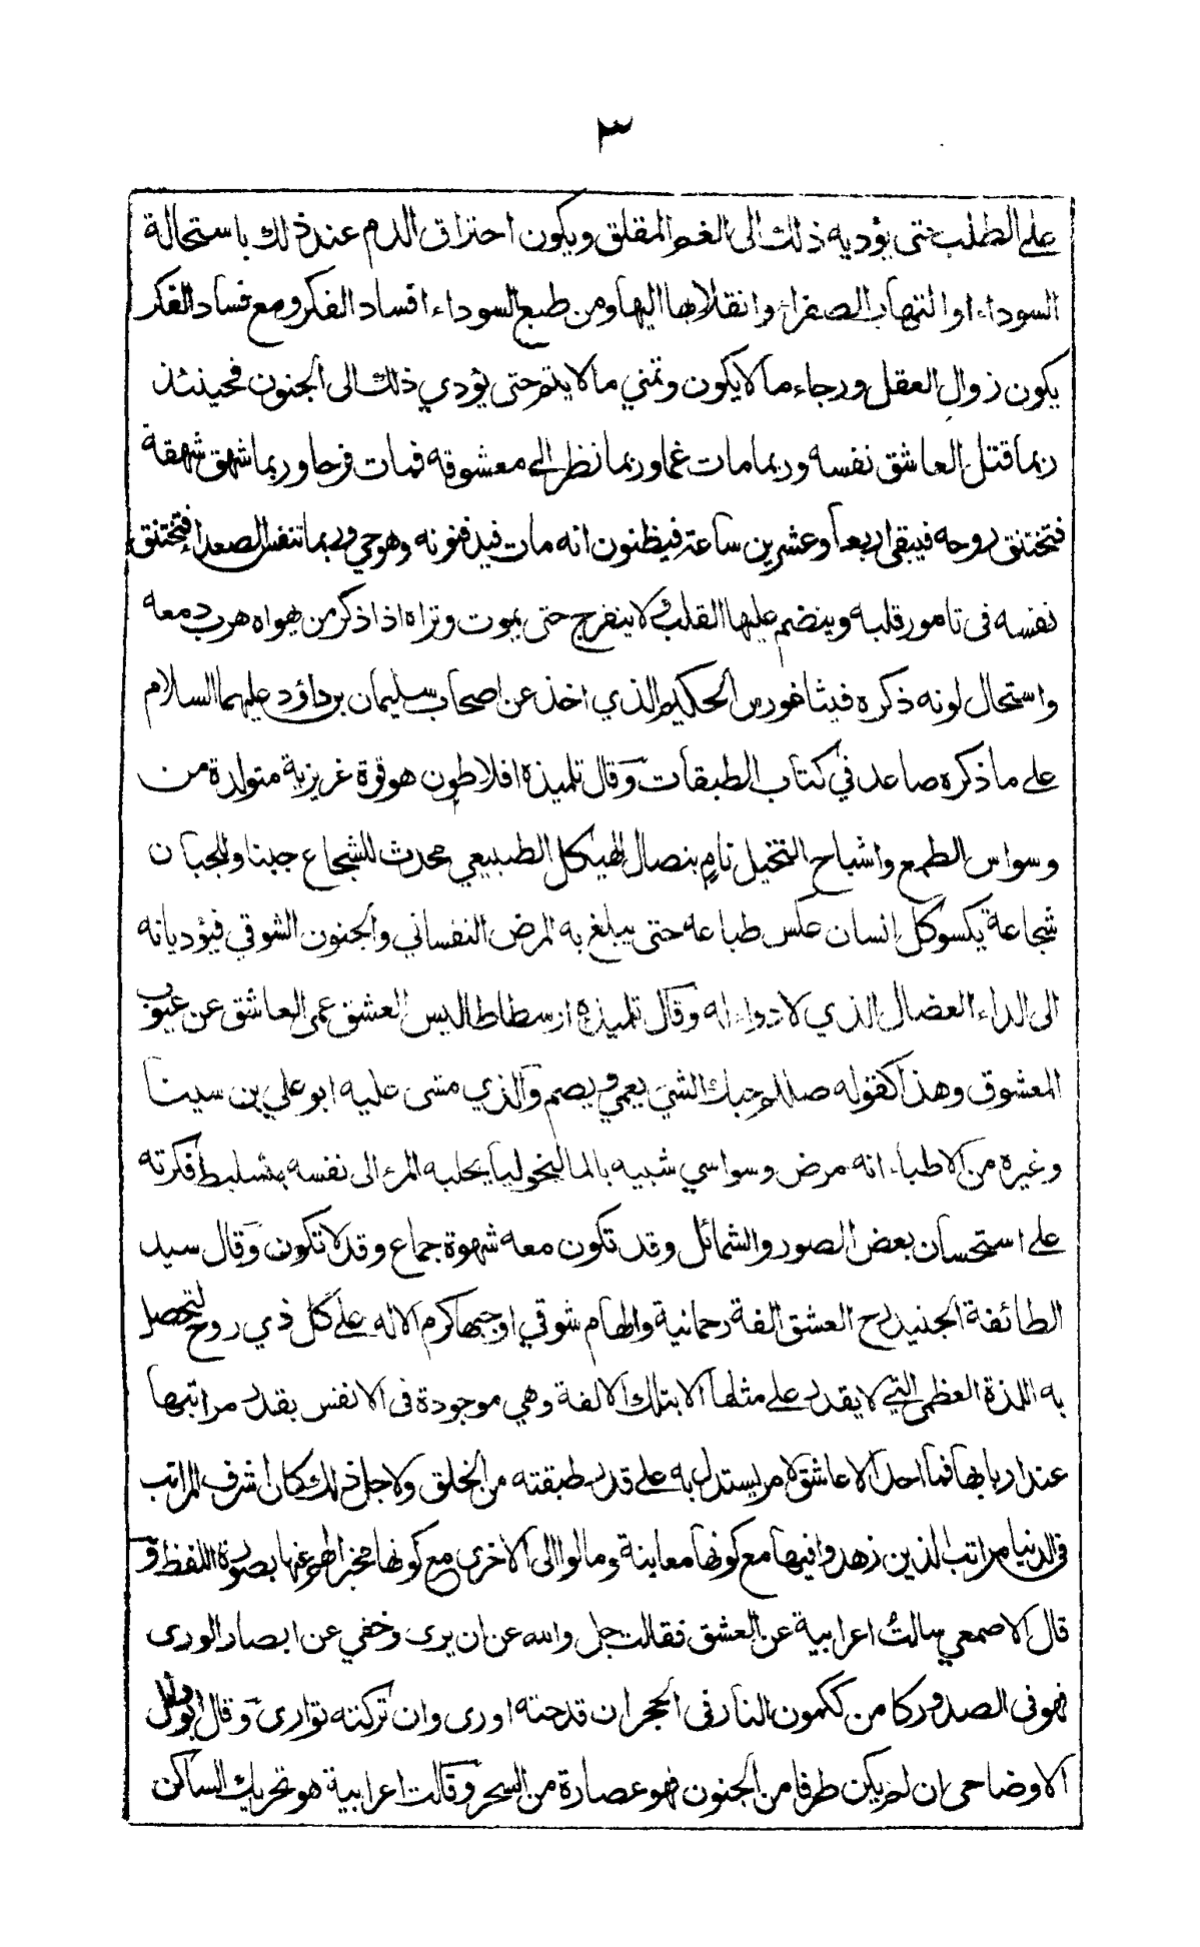 ٣
على الطلب حتى يؤديه ذلك الى الغم المقلق ويكون احتراق الدم عند ذلك باستحالة
السوداء او التهاب الصفراء وانقلابها اليها ومن طبع السوداء افساد الفكر ومع فساد الفكر
يكون زوال العقل ورجاء مالا يكون وتمني مالا يتم حتى يؤدي ذلك الى الجنون فحينئذ
ربما قتل العاشق نفسه وربما مات غما وربما نظر الى معشوقه فمات فرحا وربما شهق شهقة
فتختنق روحه فيبقى اربعا وعشرين ساعة فيظنون انه مات فيدفنونه وهو حي وربما تنفس الصعداء فتختنق
نفسه فى تامور قلبه وينضم عليها القلب ولا ينفرج حتى يموت وتراه اذا ذكر من يهواه هرب دمعه
واستحال لونه ذكره فيثاغورس الحكيم الذي اخذ عن اصحاب سليمان بن داؤد عليهما السلام
على ما ذكره صاعد في كتاب الطبقات وقال تلميذه افلاطون هو قوة غريزية متولدة من
وسواس الطمع واشباح التخيل نام بنصال الهيكل الطبيعي محدث للشجاع جبنا وللجبان
شجاعة يكسو كل انسان عكس طباعه حتى يبلغ به المرض النفساني والجنون الشوقي فيؤديانه
الى الداء العضال الذي لا دواء له وقال تلميذه ارسطاطاليس العشق عمى العاشق عن عيوب
المعشوق وهذا كقوله صللم حبك الشي يعمي ويصم والذي مشى عليه ابو علي بن سينا
وغيره من الاطباء انه مرض وسواسي شبيه بالماليخوليا يجلبه المرء الى نفسه بتسليط فكرته
على استحسان بعض الصور والشمائل وقد تكون معه شهوة جماع وقد لا تكون وقال سيد
الطائفة الجنيد رح العشق الفة رحمانية والهام شوقي اوجبها كرم الاله على كل ذي روح لتحصل
به اللذة العظمى التي لا يقدر على مثلها الا بتلك الالفة وهي موجودة فى الانفس بقدر مراتبها
عند اربابها فما احد الا عاشق لامر يستدل به على قدر طبقته من الخلق ولاجل ذلك كان اشرف المراتب
فى الدنيا مراتب الذين زهدوا فيها مع كونها معاينة ومالوا الى الاخرى مع كونها مخبرا لهم عنها بصورة اللفظ و
قال الاصمعي سالتُ اعرابية عن العشق فقالت جل والله عن ان يرى وخفي عن ابصار الورى
فهو فى الصدور كامن ككمون النار فى الحجر ان قدحته اورى وان تركته توارى وقال ابو وائل
الاوضاحى ان لم يكن طرفا من الجنون فهو عصارة من السحر وقالت اعرابية هو تحريك الساكن